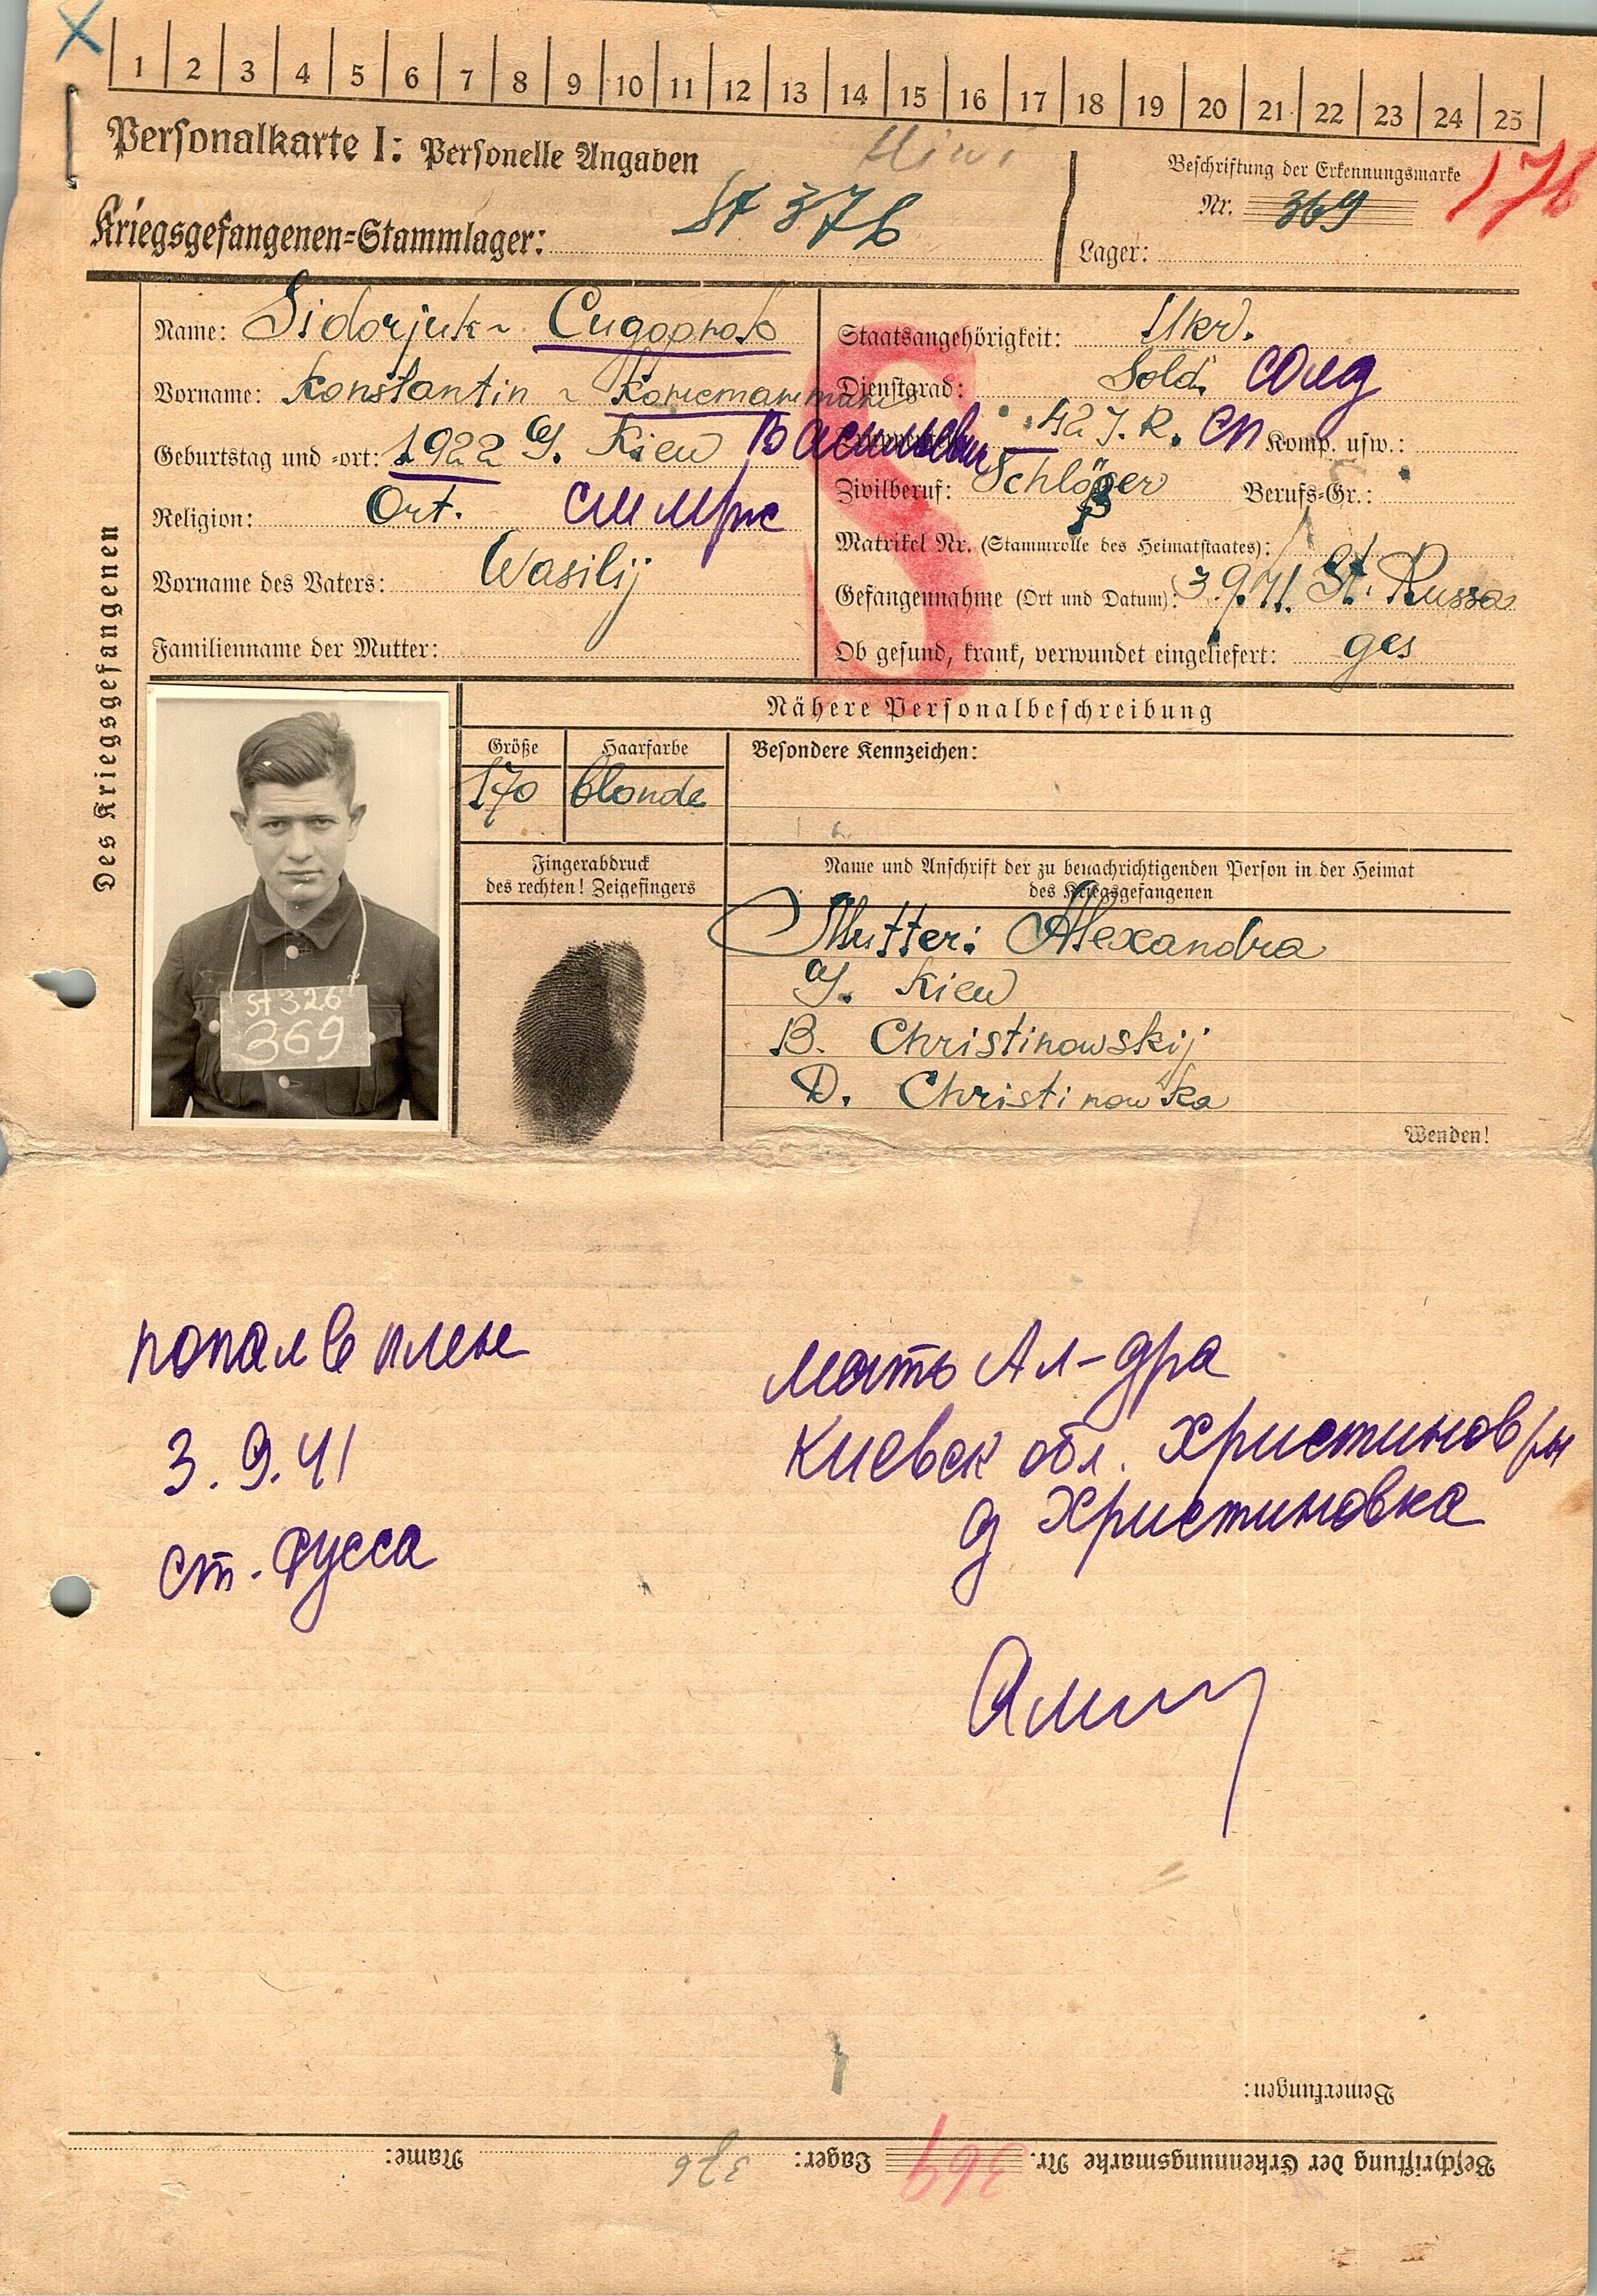 1 2 3 4 5 6 7 8 9 10 11 12 13 14 15 16 17 18 19 20 21 22 23 24 25
Personalkarte I: Personelle Angaben
Hiwi
Beschriftung der Erkennungsmarke
176
Kriegsgefangenen-Stammlager: St 376
Nr. 369
Lager:
Des Kriegsgefangenen
Name: Sidorjuk ~ Сидорюк
Vorname: Konstantin ~ Константин
Geburtstag und -ort: 1922 G. Kiew Васильевич
Religion: Ort.
Vorname des Vaters: Wasilij
Familienname der Mutter:
Staatsangehörigkeit: Ukr.
Dienstgrad: Sold. солд
42 J. R. сп Komp. usw.:
Zivilberuf: Schloßer Berufs-Gr.:
Matrikel Nr. (Stammrolle des Heimatstaates):
Gefangennahme (Ort und Datum): 3.9.41. St. Russa
Ob gesund, krank, verwundet eingeliefert: ges
S
Nähere Personalbeschreibung
Größe Haarfarbe Besondere Kennzeichen:
170 blonde
Fingerabdruck
des rechten! Zeigefingers
Name und Anschrift der zu benachrichtigenden Person in der Heimat
des Kriegsgefangenen
Mutter: Alexandra
G. Kiew
B. Christinowskij
D. Christinowka
St 326
369
Wenden!
попал в плен
3.9.41
ст. Русса
мать Ал-дра
Киевск обл. Христинов р/н
д Христиновка
Bemerkungen:
Beschriftung der Erkennungsmarke Nr. 369 Lager: 376 Name: